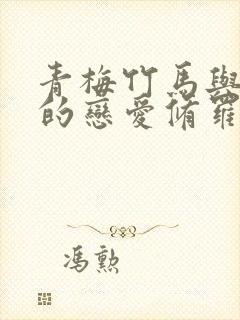 青梅竹馬與
的戀愛脩羅
馮勲